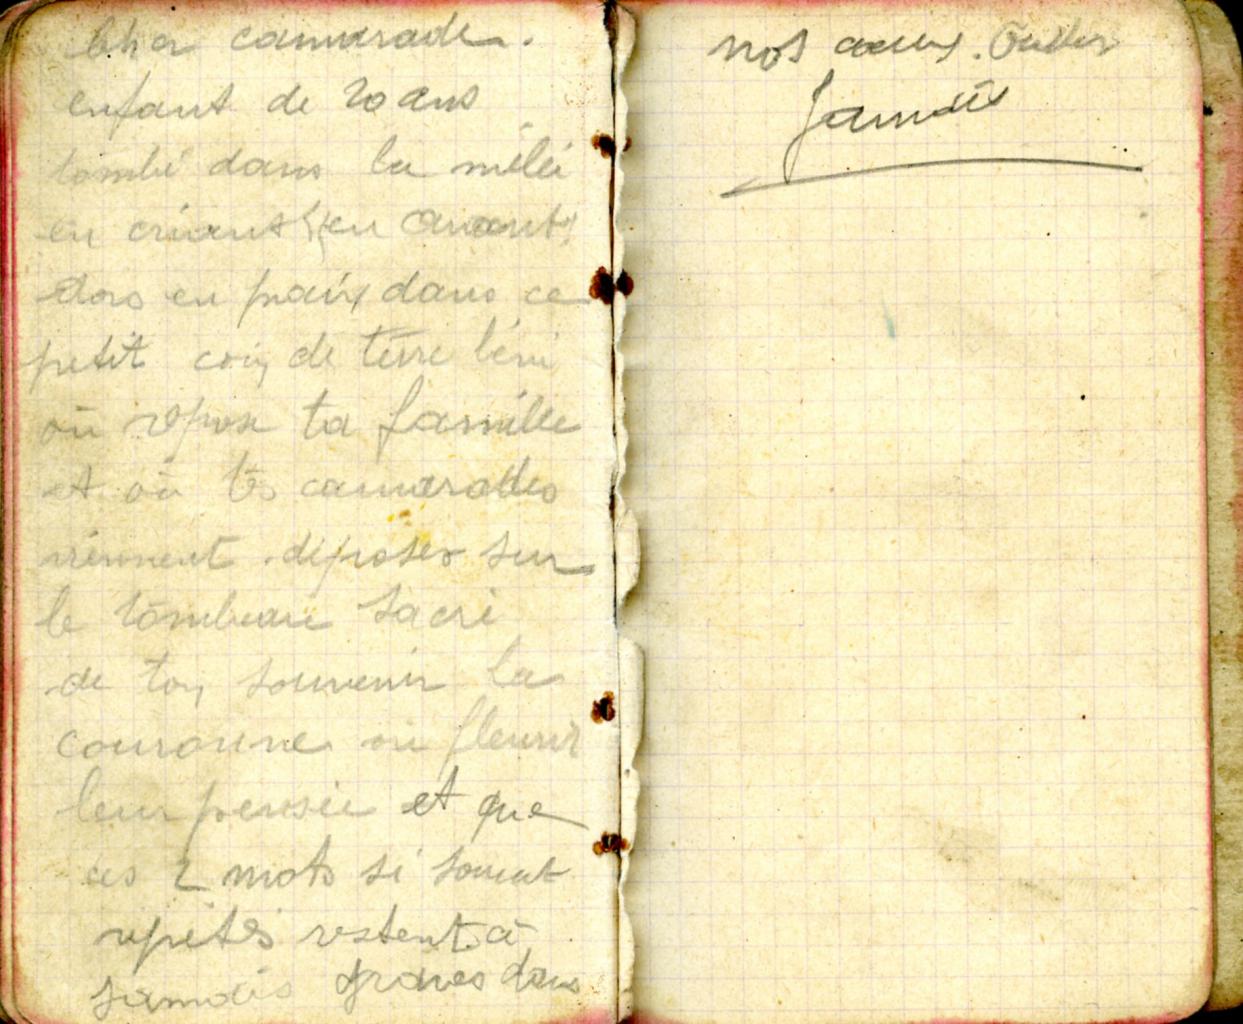 Cher camarade.
enfant de 20 ans
tombé dans la mêlée
en criant "en avant"
dors en paix dans ce
petit coin de terre béni
où repose ta famille
et où tes camarades
viennent déposer sur
le tombeau sacré
de ton souvenir la
couronne où fleurit
leur pensée et que
ces 2 mots si souvent
répétés restent à
jamais gravés dans
nos cœurs. Oublier
Jamais